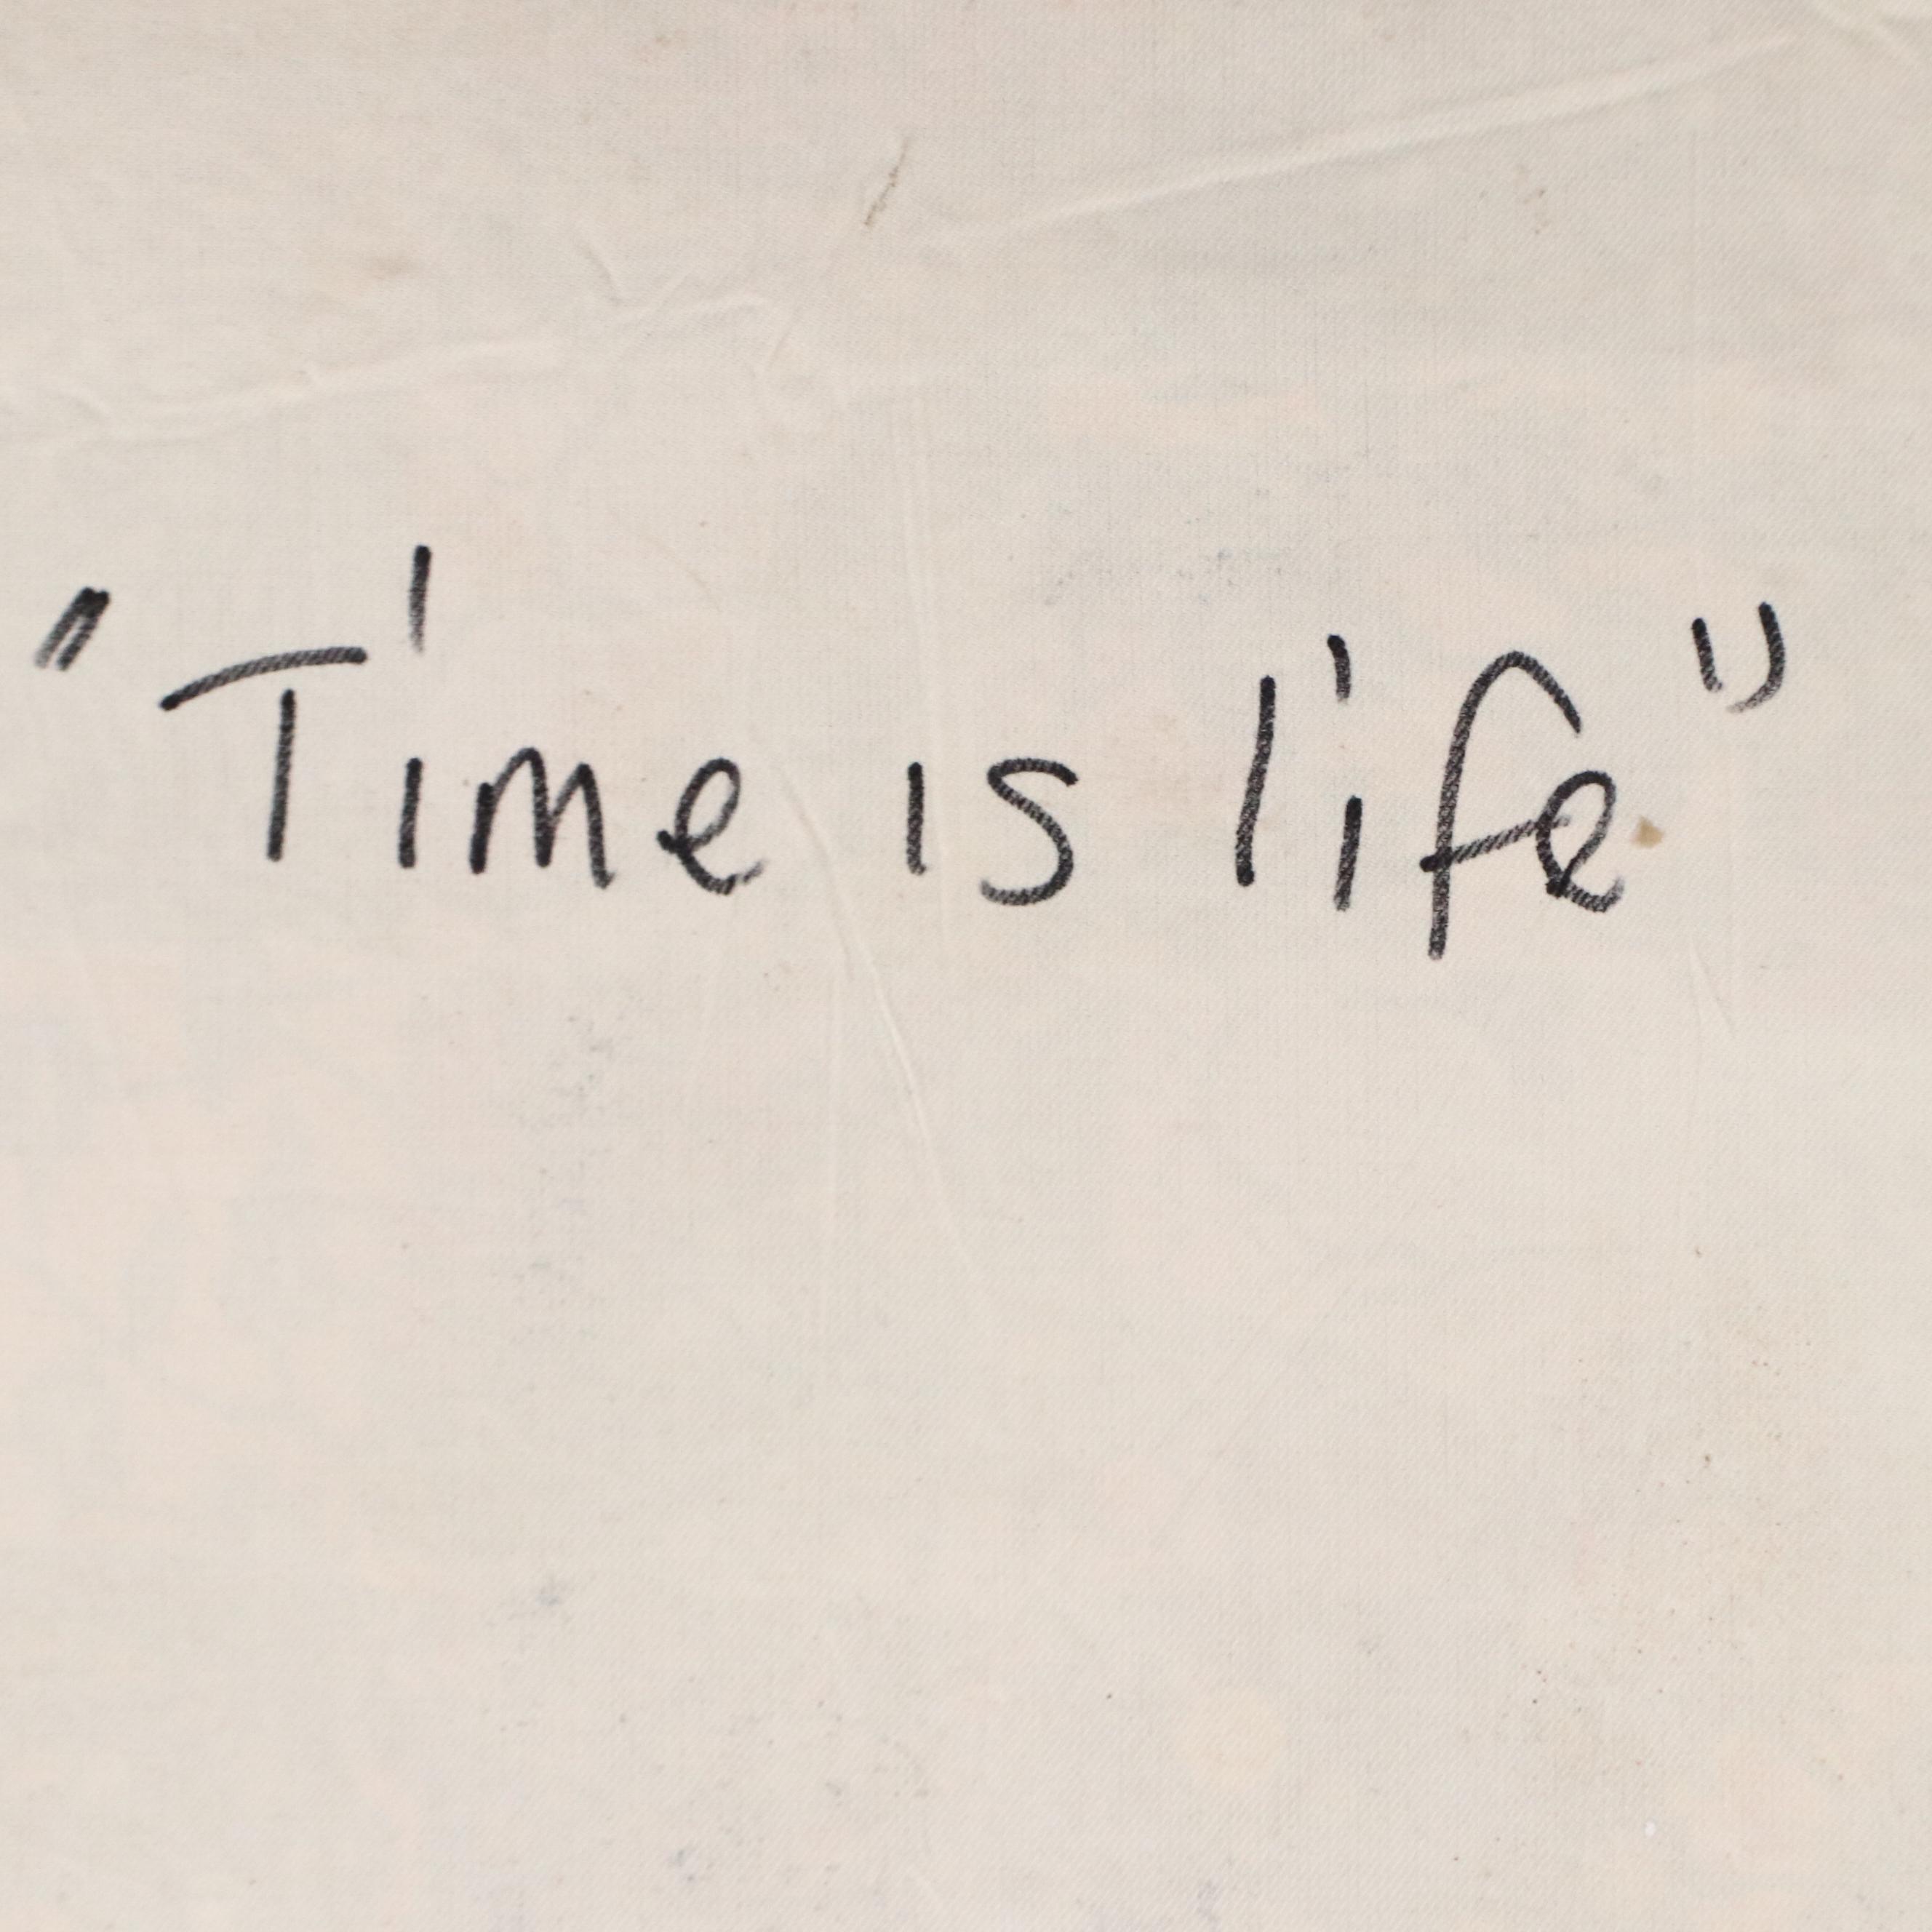 "Time is life"